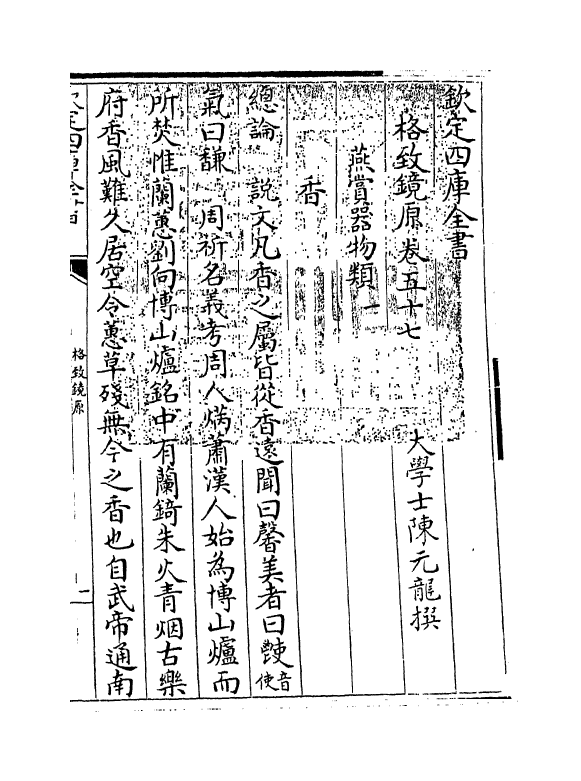 欽定四庫全書
格致鏡原卷五十七
大學士陳元龍撰
燕賞器物類一
香
總論　說文凡香之屬皆從香遠聞曰馨美者曰䭲音使
氣曰馦　周祈名義考周人焫蕭漢人始為博山爐而
所焚惟蘭蕙劉向博山爐銘中有蘭錡朱火青烟古樂
府香風難久居空令蕙草殘無今之香也自武帝通南
格致鏡原